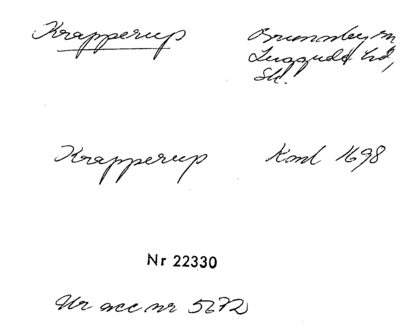 Krapperup Brunnby sn
Luggude hd,
Sk.
Krapperup Konl 1698
Nr 22330
Ur acc nr 5672